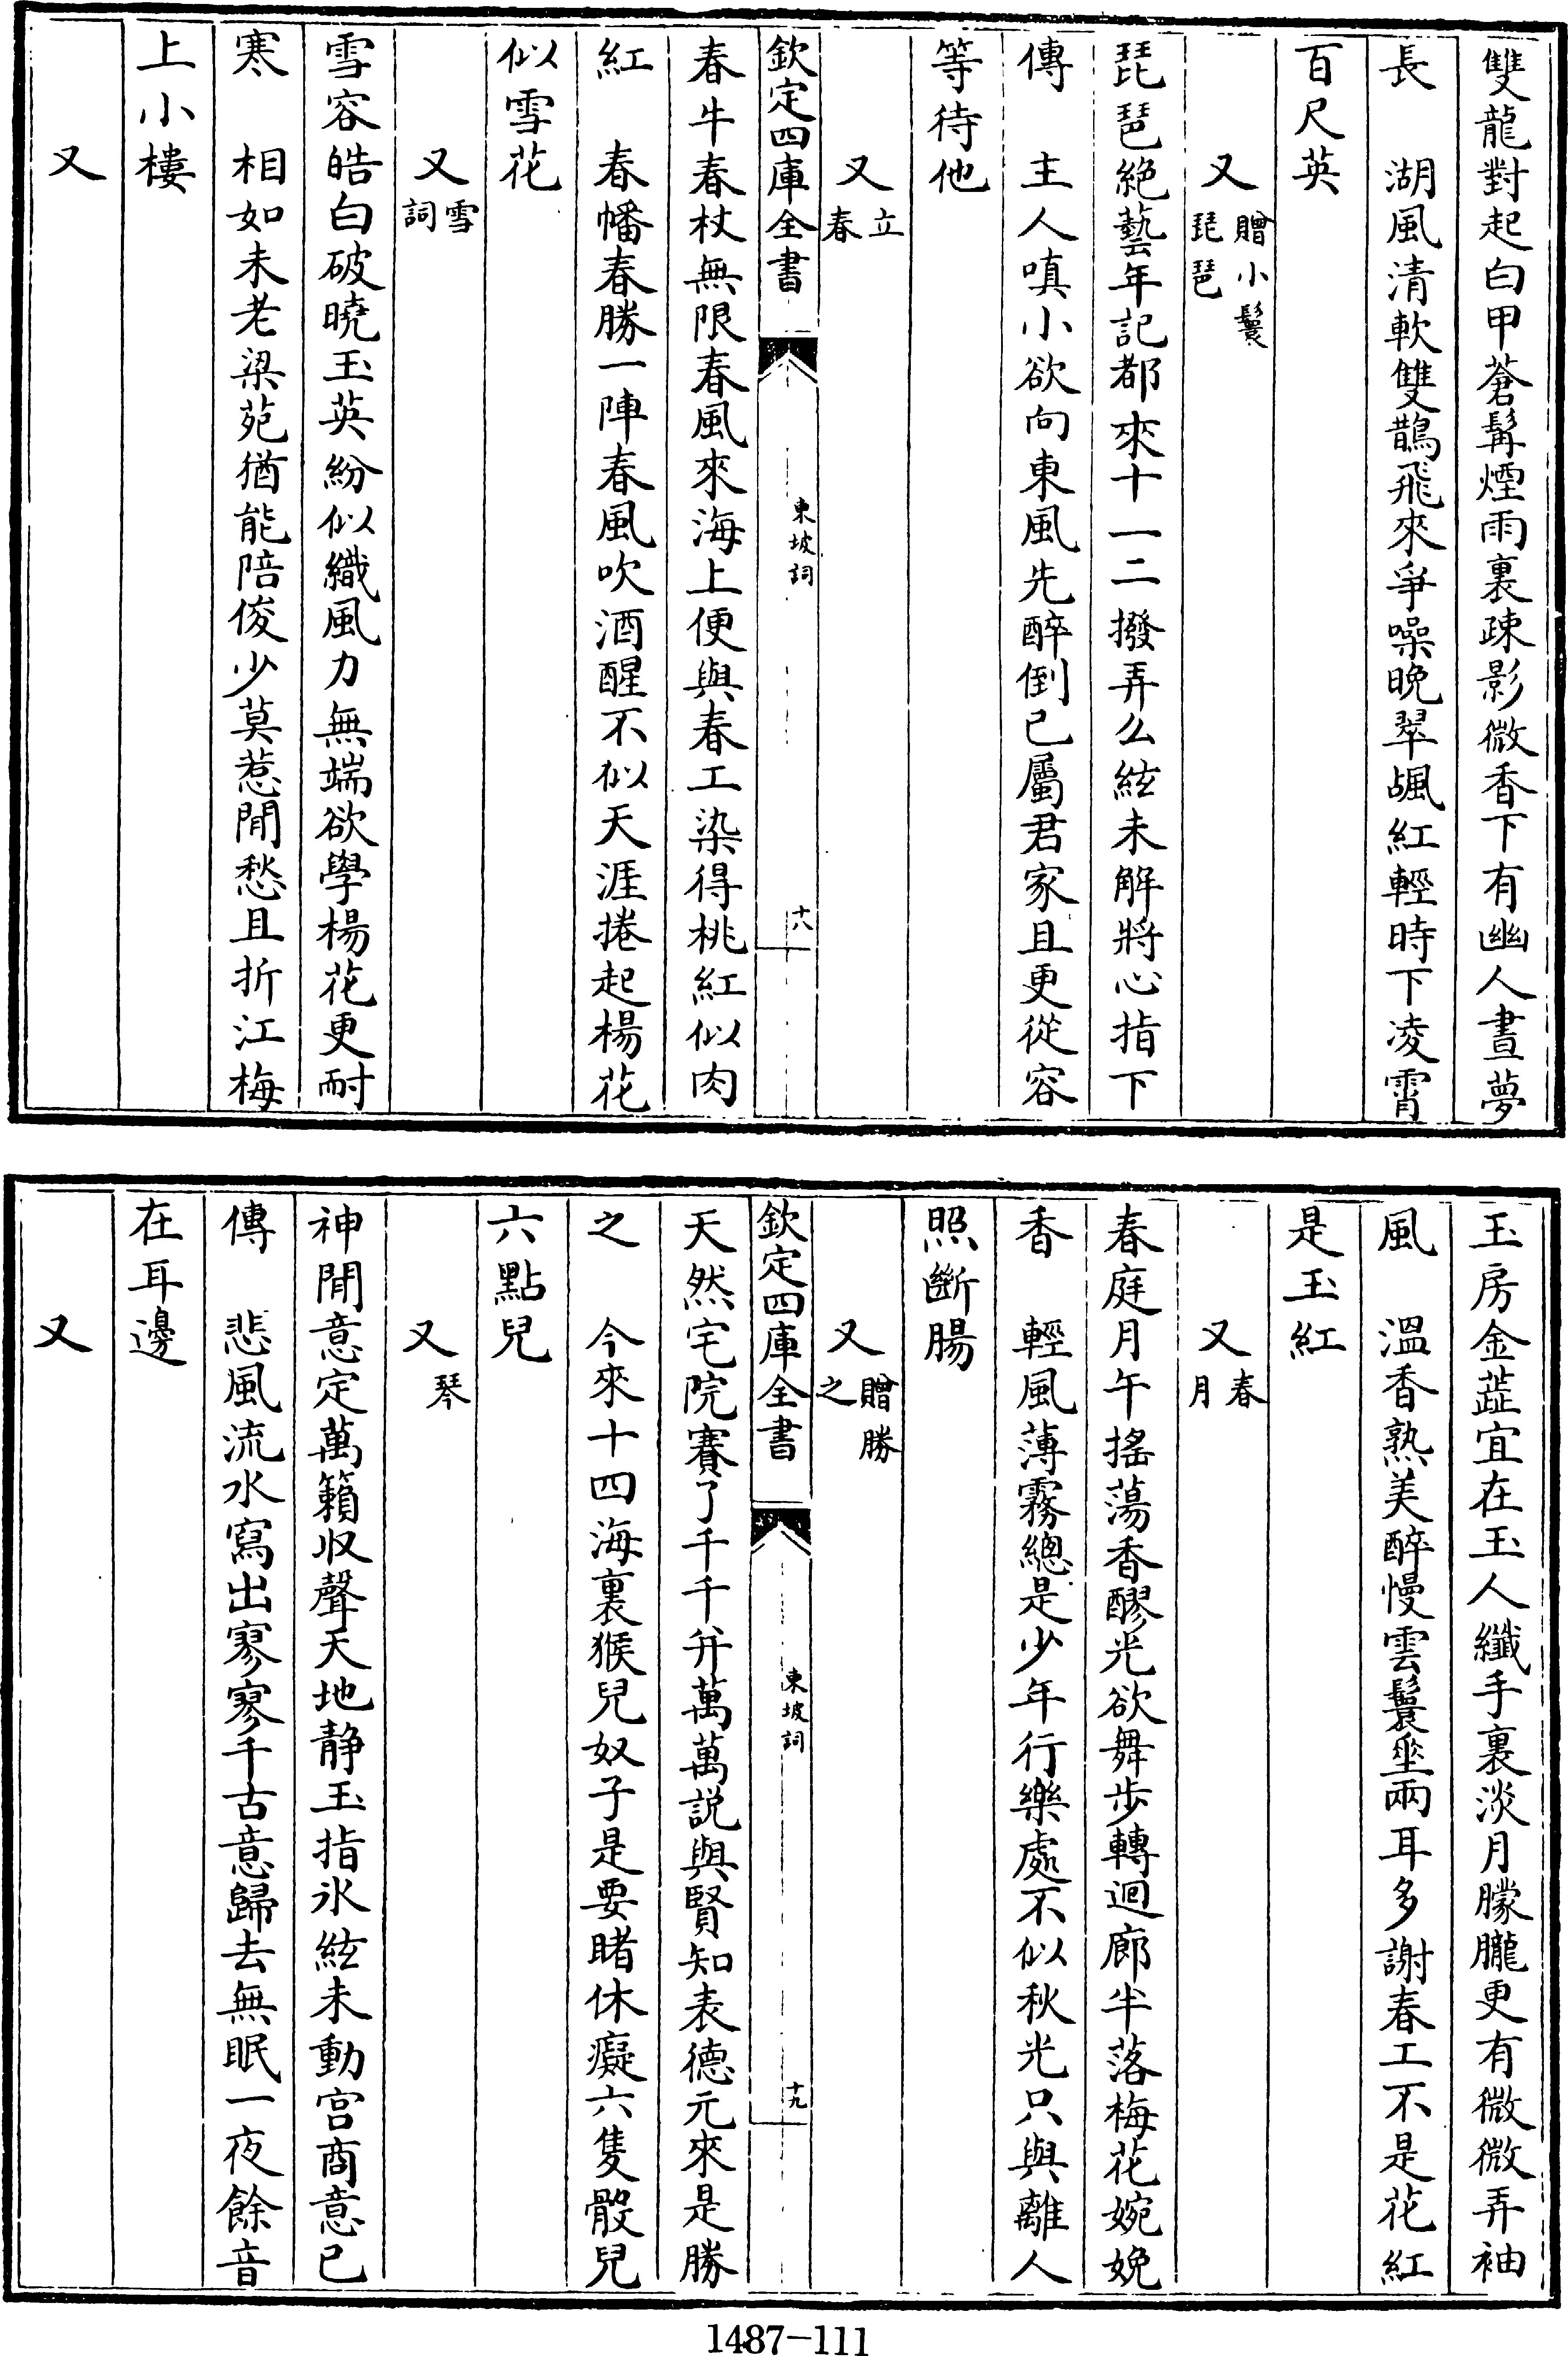 雙龍對起白甲蒼髯煙雨裏疎影微香下有幽人晝夢
長　湖風清軟雙鵲飛來爭噪晚翠颭紅輕時下凌霄
百尺英
又贈小鬟琵琶
琵琶絶藝年記都來十一二撥弄么絃未解將心指下
傳　主人嗔小欲向東風先醉倒已屬君家且更從容
等待他
又立春
欽定四庫全書
東坡詞
十八
春牛春杖無限春風來海上便與春工染得桃紅似肉
紅　春幡春勝一陣春風吹酒醒不似天涯捲起楊花
似雪花
又雪詞
雪容皓白破曉玉英紛似織風力無端欲學楊花更耐
寒　相如未老梁苑猶能陪俊少莫惹閒愁且折江梅
上小樓
又
玉房金蕋宜在玉人纖手裏淡月朦朧更有微微弄袖
風　溫香熟美醉慢雲鬟垂兩耳多謝春工不是花紅
是玉紅
又春月
春庭月午搖蕩香醪光欲舞步轉迴廊半落梅花婉娩
香　輕風薄霧總是少年行樂處不似秋光只與離人
照斷腸
又贈勝之
欽定四庫全書
東坡詞
十九
天然宅院賽了千千并萬萬説與賢知表德元來是勝
之　今來十四海裏猴兒奴子是要睹休癡六隻骰兒
六點兒
又琴
神閒意定萬籟収聲天地静玉指氷絃未動宫商意已
傳　悲風流水寫出寥寥千古意歸去無眠一夜餘音
在耳邊
又
1487-111